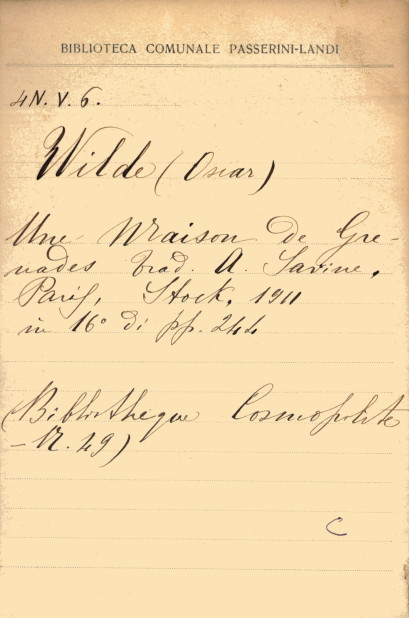 BIBLIOTECA COMUNALE PASSERINI-LANDI
4N. V. 6.
Wilde (Oscar)
Une Maison de Gre-
nades trad. A. Savine.
Paris, Stock, 1911
in 16° di pp. 244
(Bibliotheque Cosmopolite
- N. 49)
C